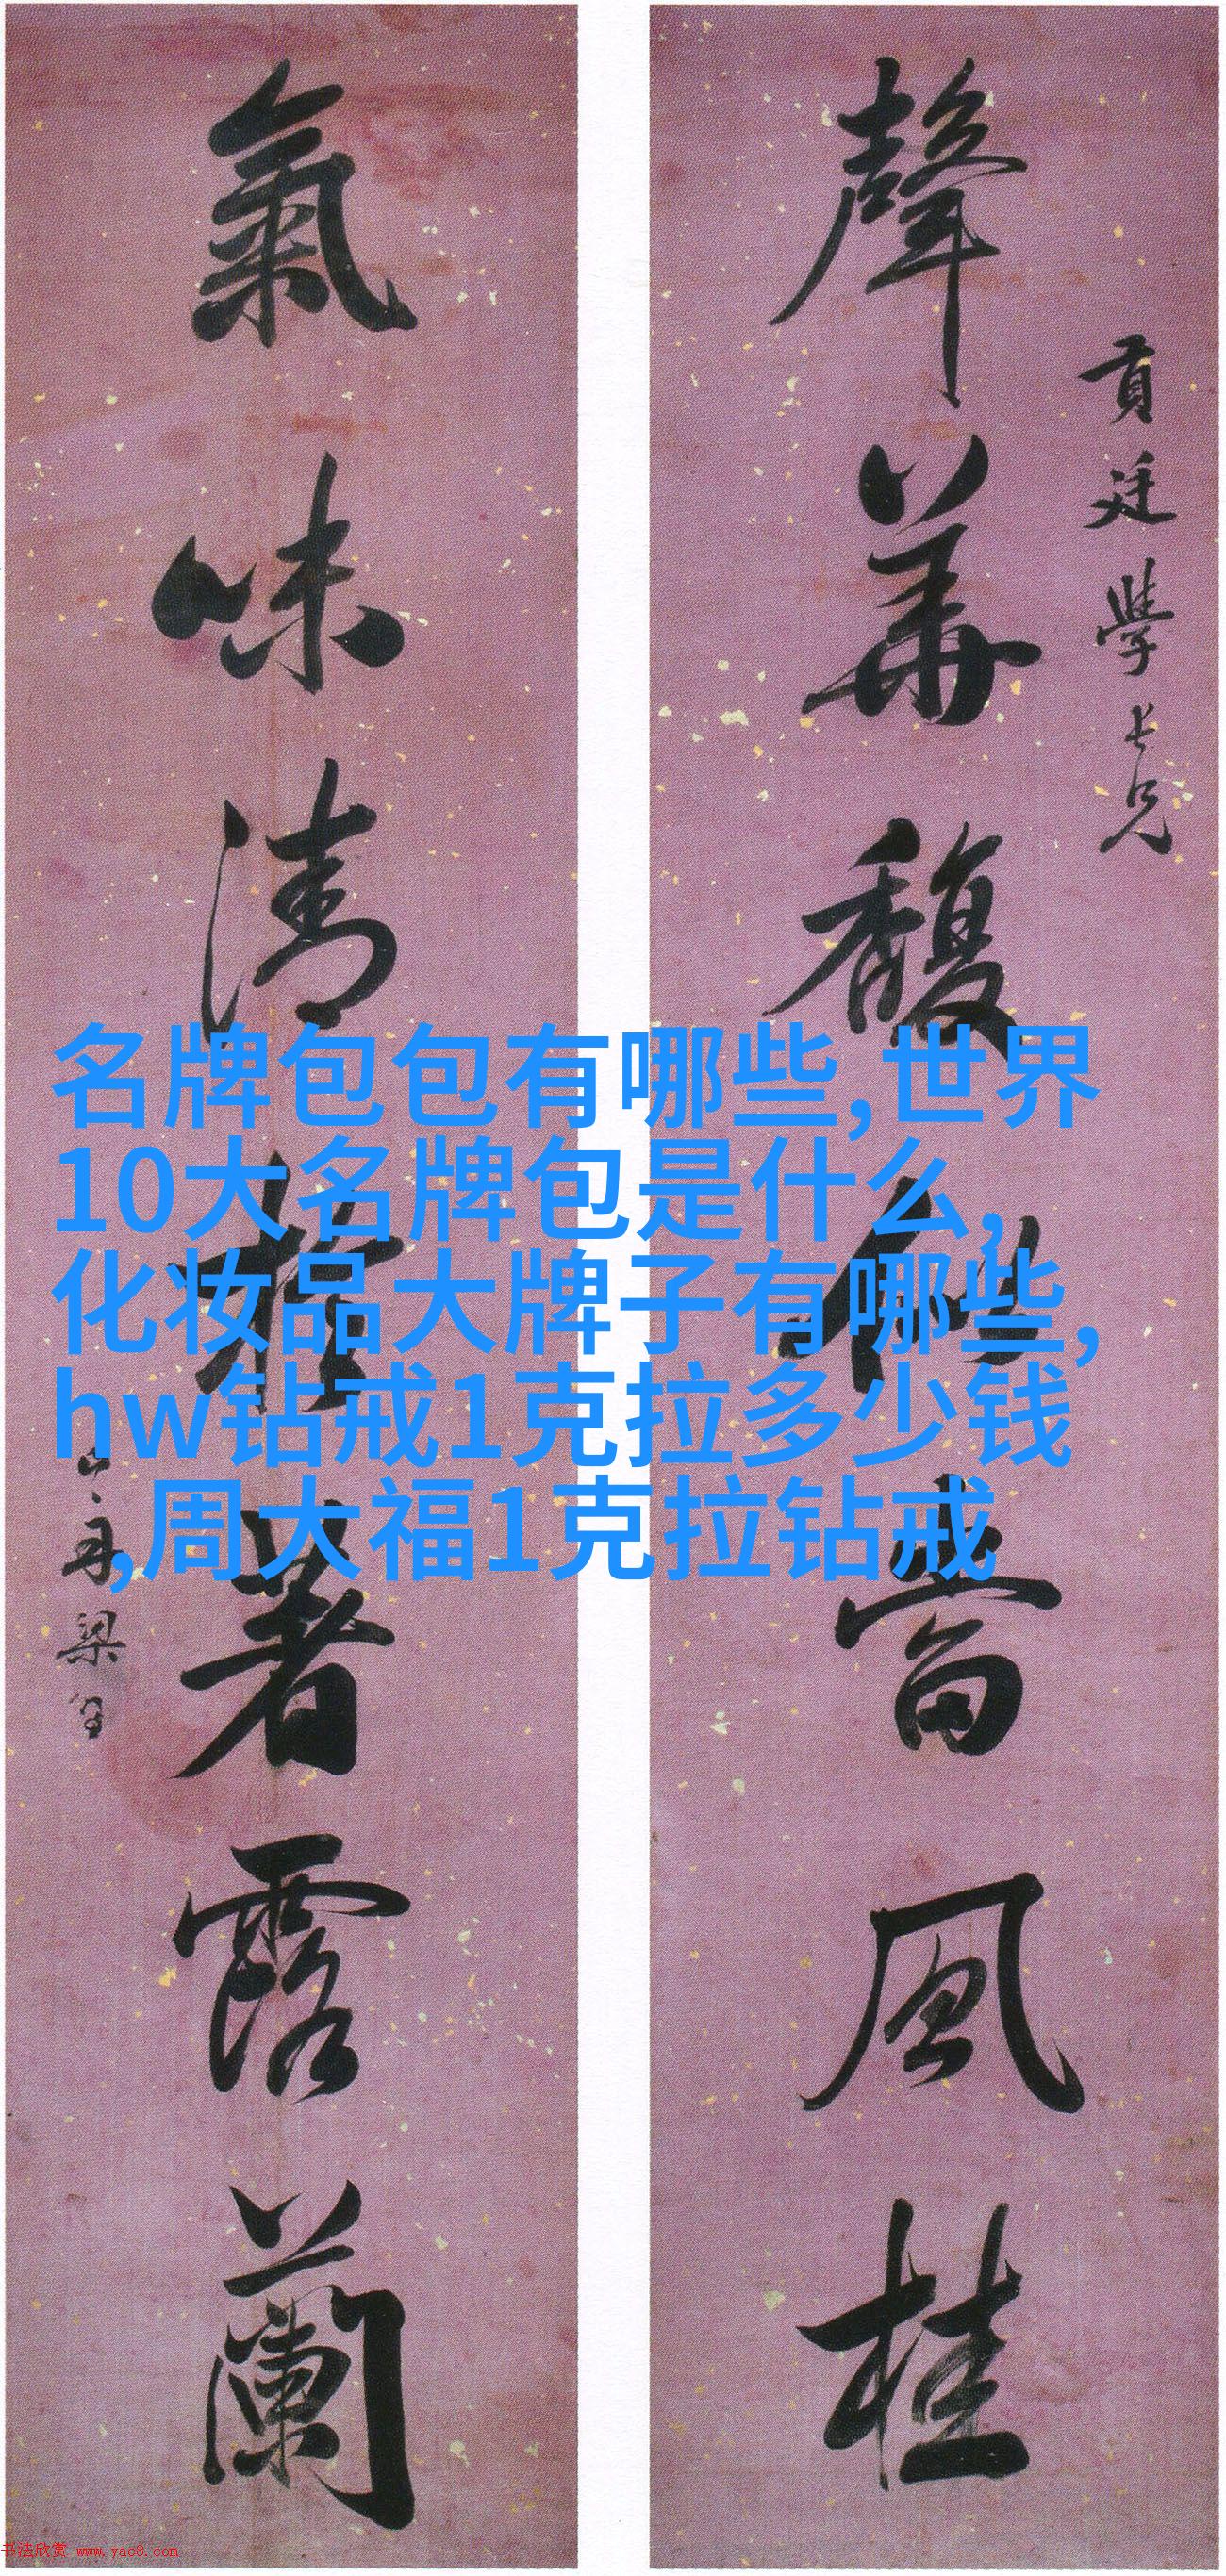 聲華馥比當風桂
貢廷學長兄
氣味清於著露蘭
山舟梁同書
名牌包包有哪些,世界
10大名牌包是什么,
化妆品大牌子有哪些,
hw钻戒1克拉多少钱
,周大福1克拉钻戒
书法欣赏 www.yac8.com